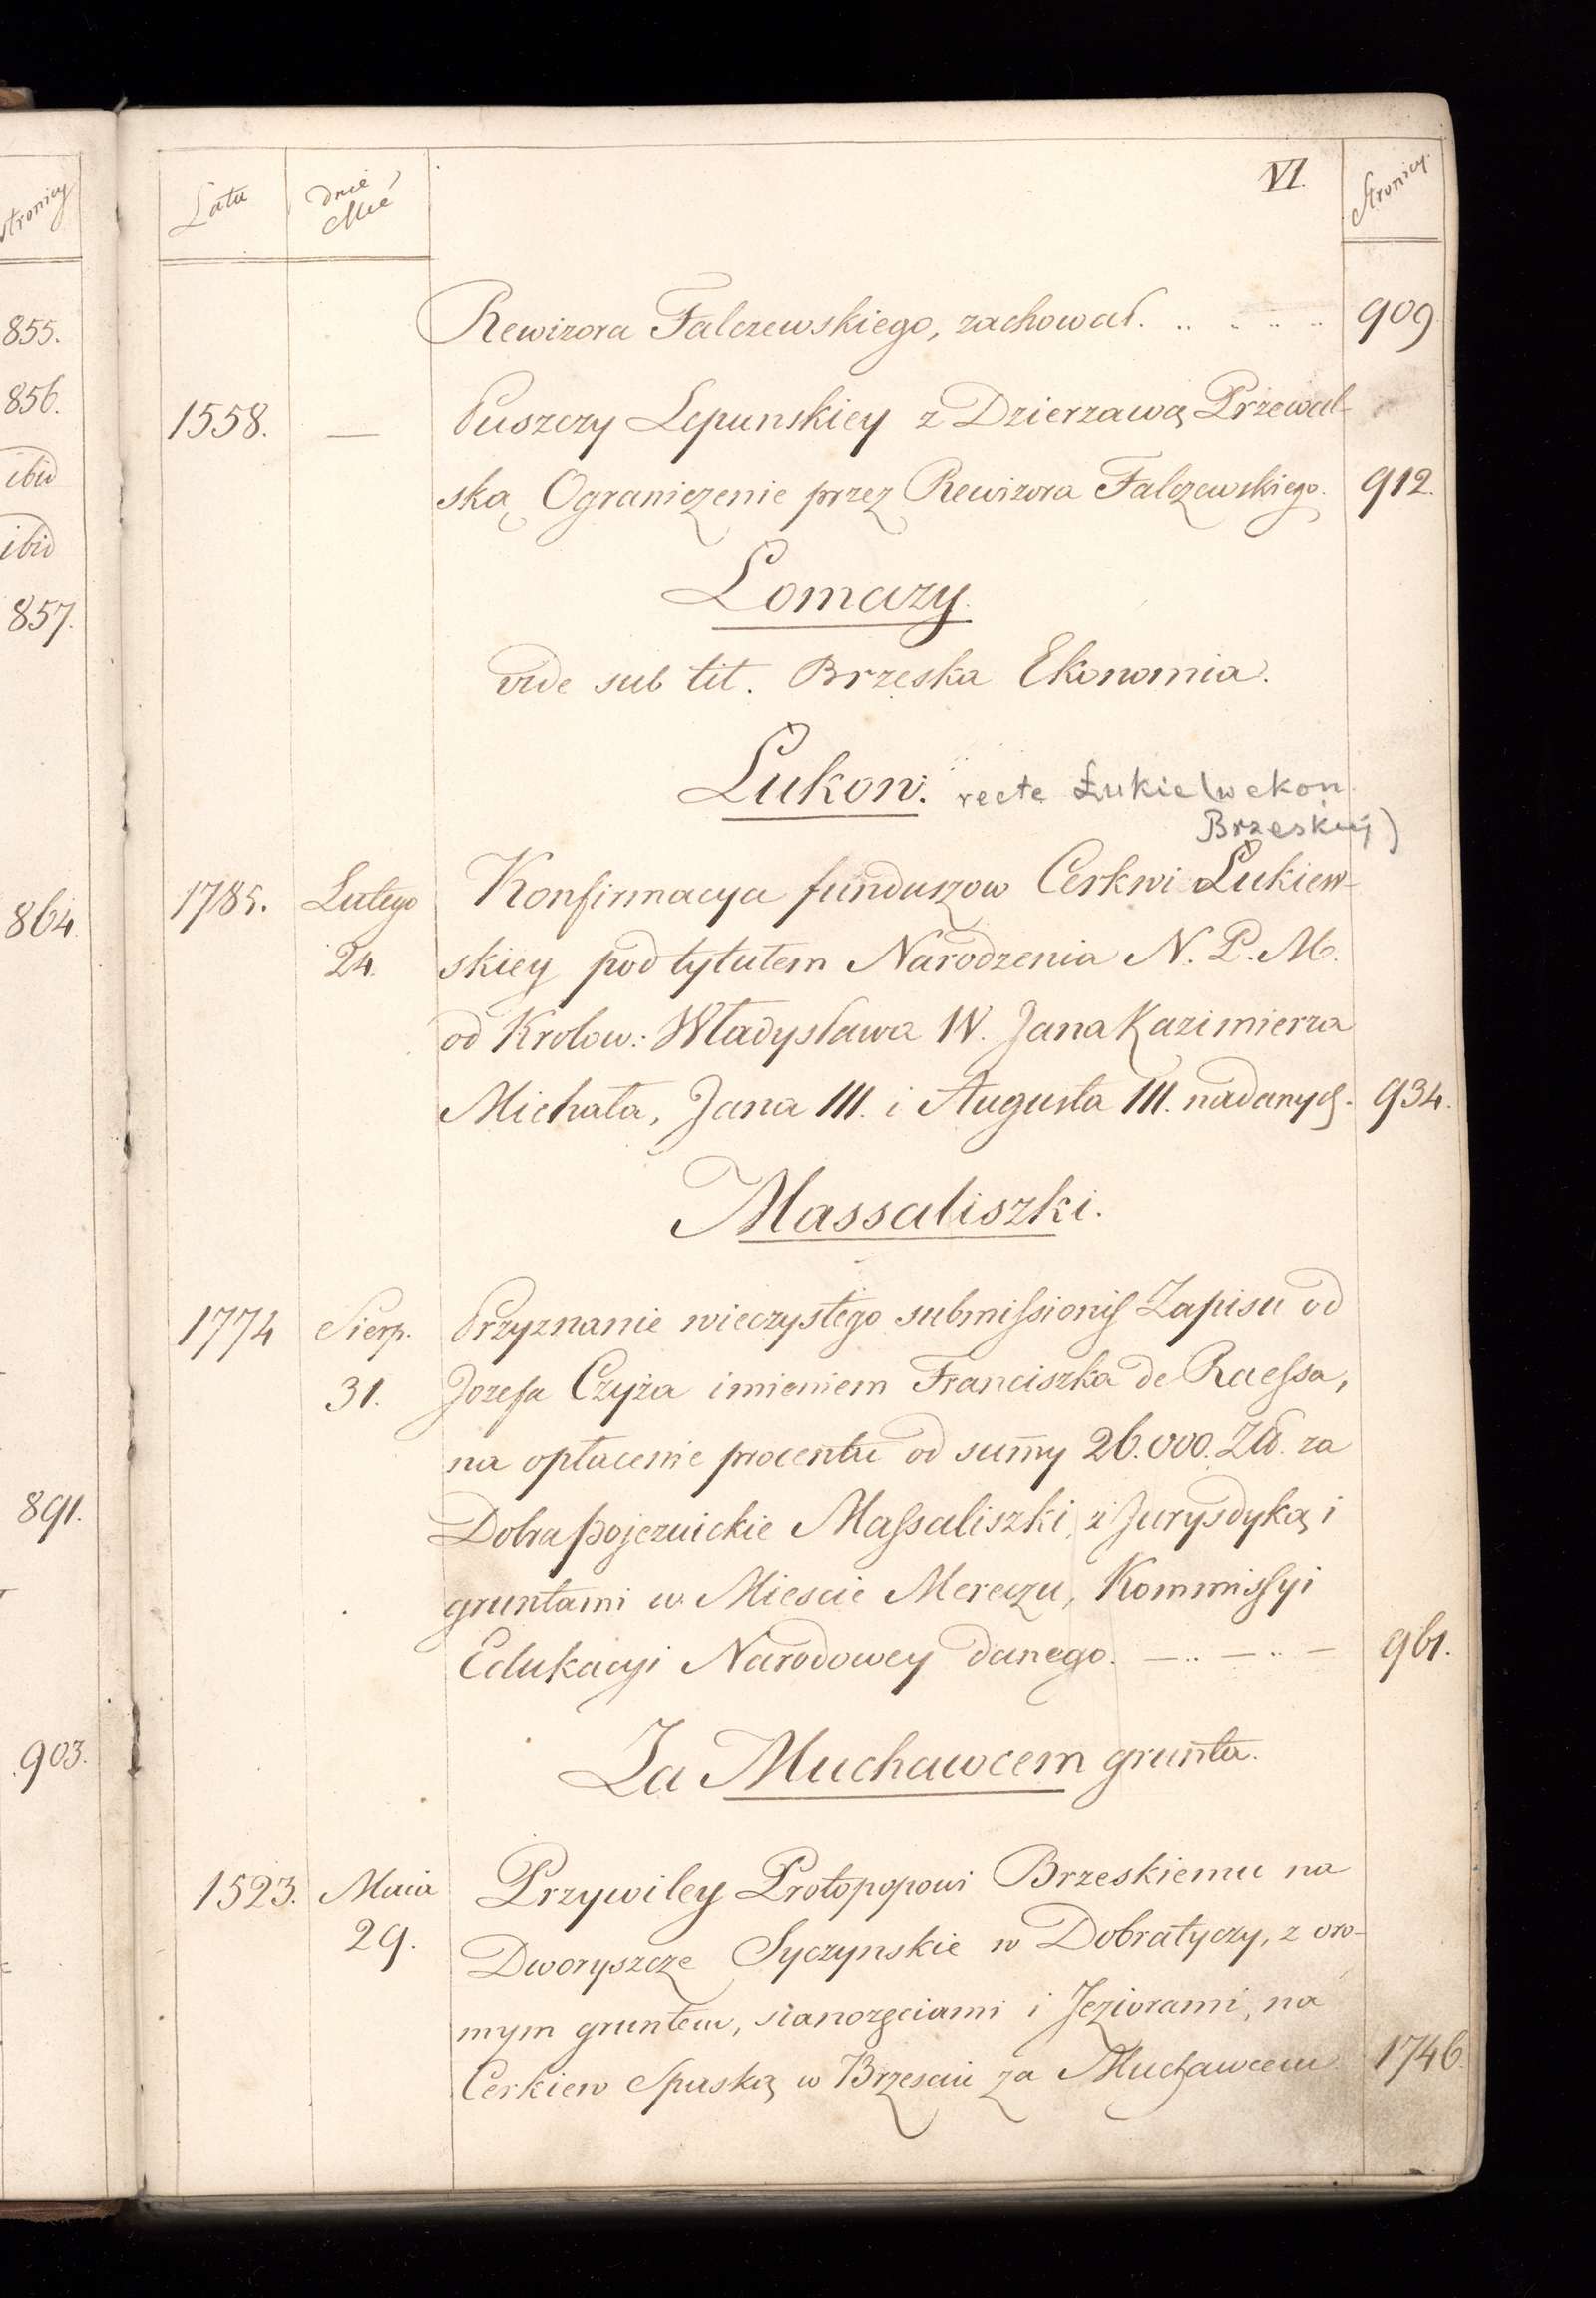 stronicy
855.
856.
ibid
ibid
857.
864
891.
903.
VI.
Lata
dnie
Mié
Stronicy.
Rewizora Falczewskiego, zachował. .. .. .. .. 909
1558. — Puszczy Lepunskiey z Dzierzawą Przewal-
ską Ograniczenie przez Rewizora Falczewskiego. 912.
Lomazy.
vide sub tit. Brzeska Ekonomia.
Lukow. recte Łukie (w ekon.
Brzeskiej)
1785. Lutego Konfirmacya funduszow Cerkwi Lukiew-
24. skiey pod tytułem Narodzenia N. P. M.
od Krolow: Władysława IV. Jana Kazimierza
Michała, Jana III. i Augusta III. nadanych. 934.
Massaliszki.
1774 Sierp. Przyznanie wieczystego submissionis Zapisu od
31. Jozefa Czyża imieniem Franciszka de Raessa,
na opłacenie procentu od sum̄y 26.000. Zł. za
Dobra pojezuickie Massaliszki z Jurysdyką i
gruntami w Miescie Mereczu, Kommissyi
Edukacyi Narodowey danego. — .. — .. — 961.
Za Muchawcem grunta.
1523. Maia Przywiley Protopopowi Brzeskiemu na
29. Dworyszcze Syczynskie w Dobratyczy, z oro-
mym gruntem, sianożęciami i Jeziorami, na
Cerkiew Spaską w Brzesciu za Muchawcem 1746.